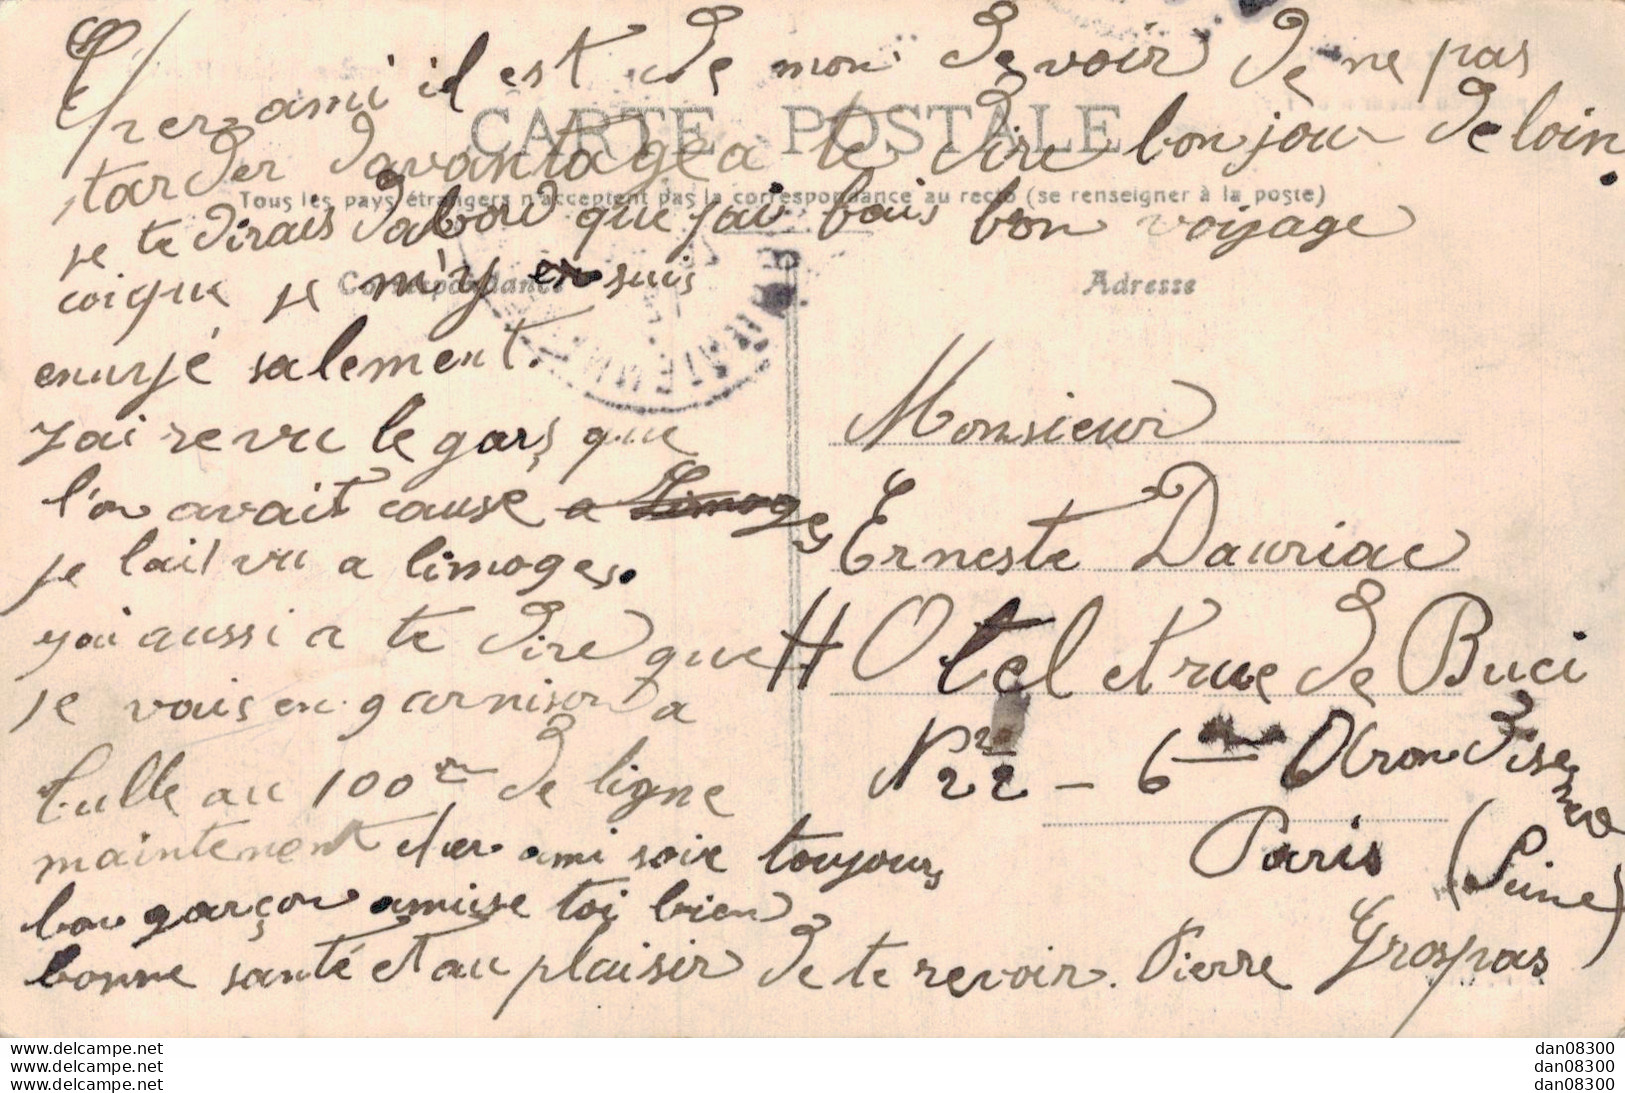 Cher ami il est de mon devoir de ne pas
tarder davantage a te dire bonjour de loin.
CARTE POSTALE
Tous les pays étrangers n'acceptent pas la correspondance au recto (se renseigner à la poste)
je te dirais dabord que jai fais bon voyage
coique je m'y en suis
Correspondance
Adresse
enuyé salement.
Jai revu le gars que
l'on avait cause a Limoges
je lail vu a limoges.
jai aussi a te dire que
je vais en garnison a
tulle au 100me de ligne
maintenent cher ami soie toujours
bon garçon amuse toi bien
bonne santé et au plaisir de te revoir. Pierre Grospas
Monsieur
Erneste Dauriac
HOtel et rue de Buci
No 22 - 6me Arondisement
Paris (Seine)
www.delcampe.net
www.delcampe.net
www.delcampe.net
dan08300
dan08300
dan08300